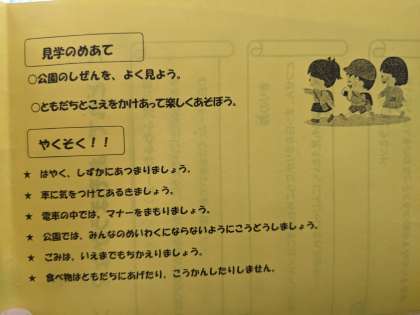 見学のめあて
○公園のしぜんを、よく見よう。
○ともだちとこえをかけあって楽しくあそぼう。
やくそく!!
★ はやく、しずかにあつまりましょう。
★ 車に気をつけてあるきましょう。
★ 電車の中では、マナーをまもりましょう。
★ 公園では、みんなのめいわくにならないようにこうどうしましょう。
★ ごみは、いえまでもちかえりましょう。
★ 食べ物はともだちにあげたり、こうかんしたりしません。